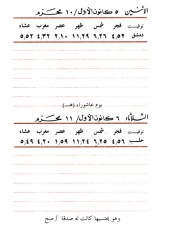 الاثنين ٥ كانون الأول / ١٠ محرم
توقيت فجر شمس ظهر عصر مغرب عشاء
دمشق ٤،٥٦ ٦،٢٦ ١١،٢٩ ٢،١٠ ٤،٣٢ ٥،٥٢
يوم عاشوراء (هـ)
الثلاثاء ٦ كانون الأول / ١١ محرم
توقيت فجر شمس ظهر عصر مغرب عشاء
حلب ٤،٥٦ ٦،٢٦ ١١،٢٤ ١،٥٩ ٤،٢٠ ٥،٤٩
وهو يحتسبها كانت له صدقة / صح